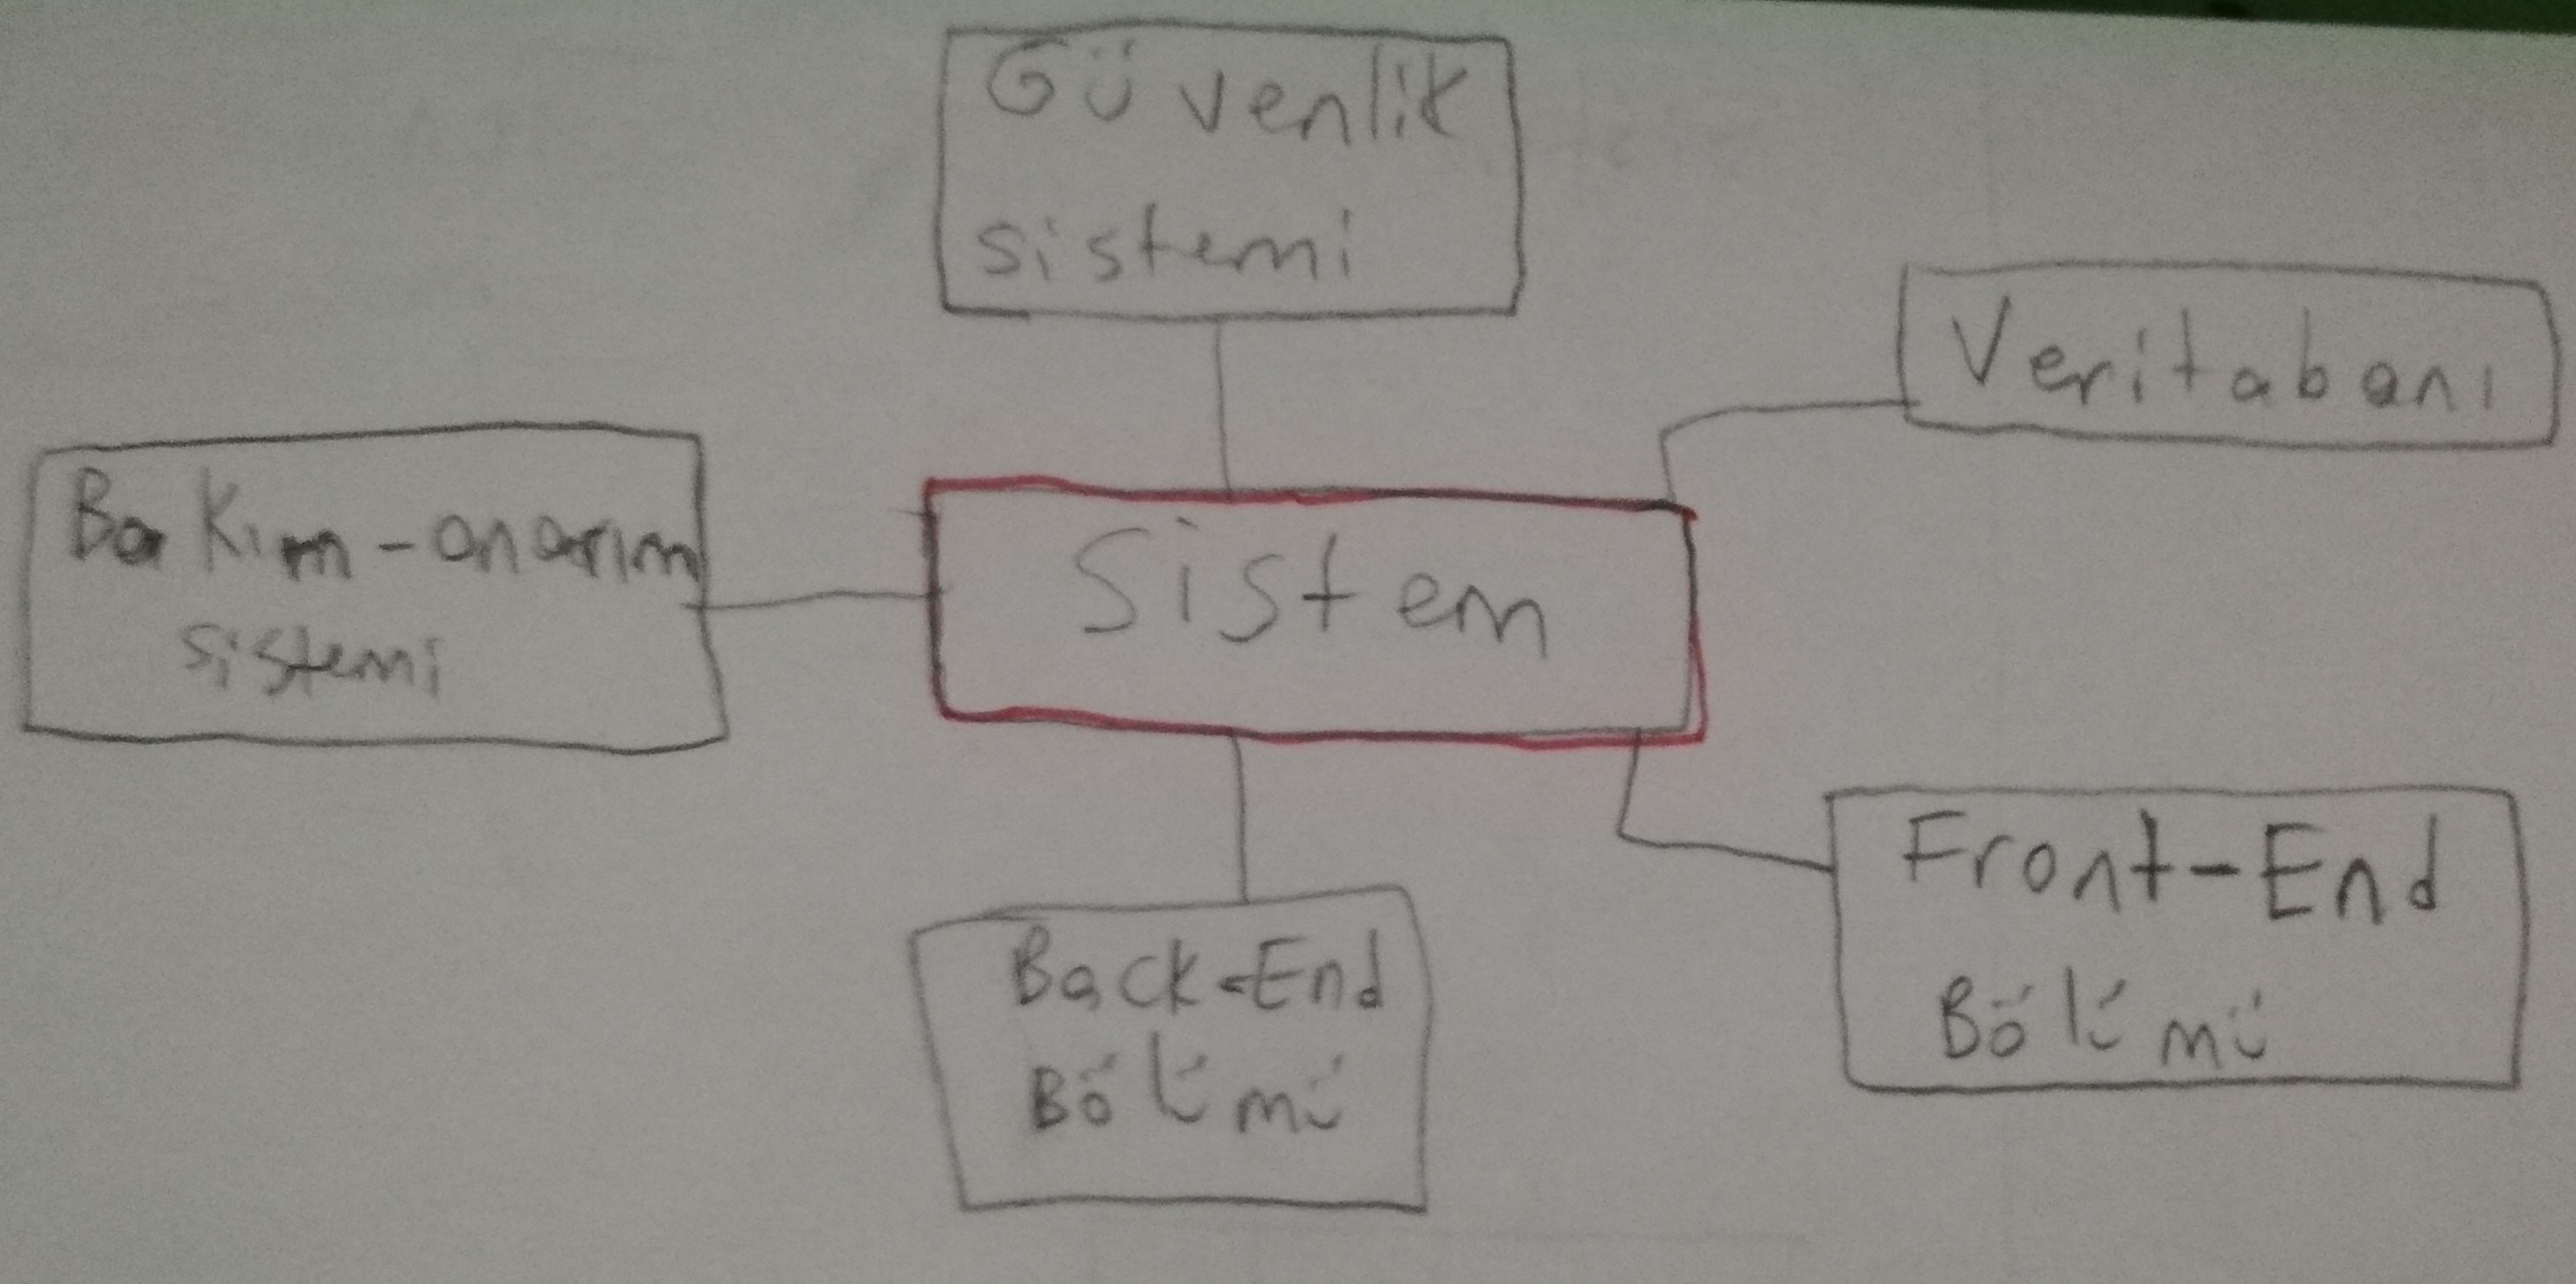 Güvenlik
sistemi
Veritabanı
Bakım-onarım
sistemi
Sistem
Front-End
Bölümü
Back-End
Bölümü